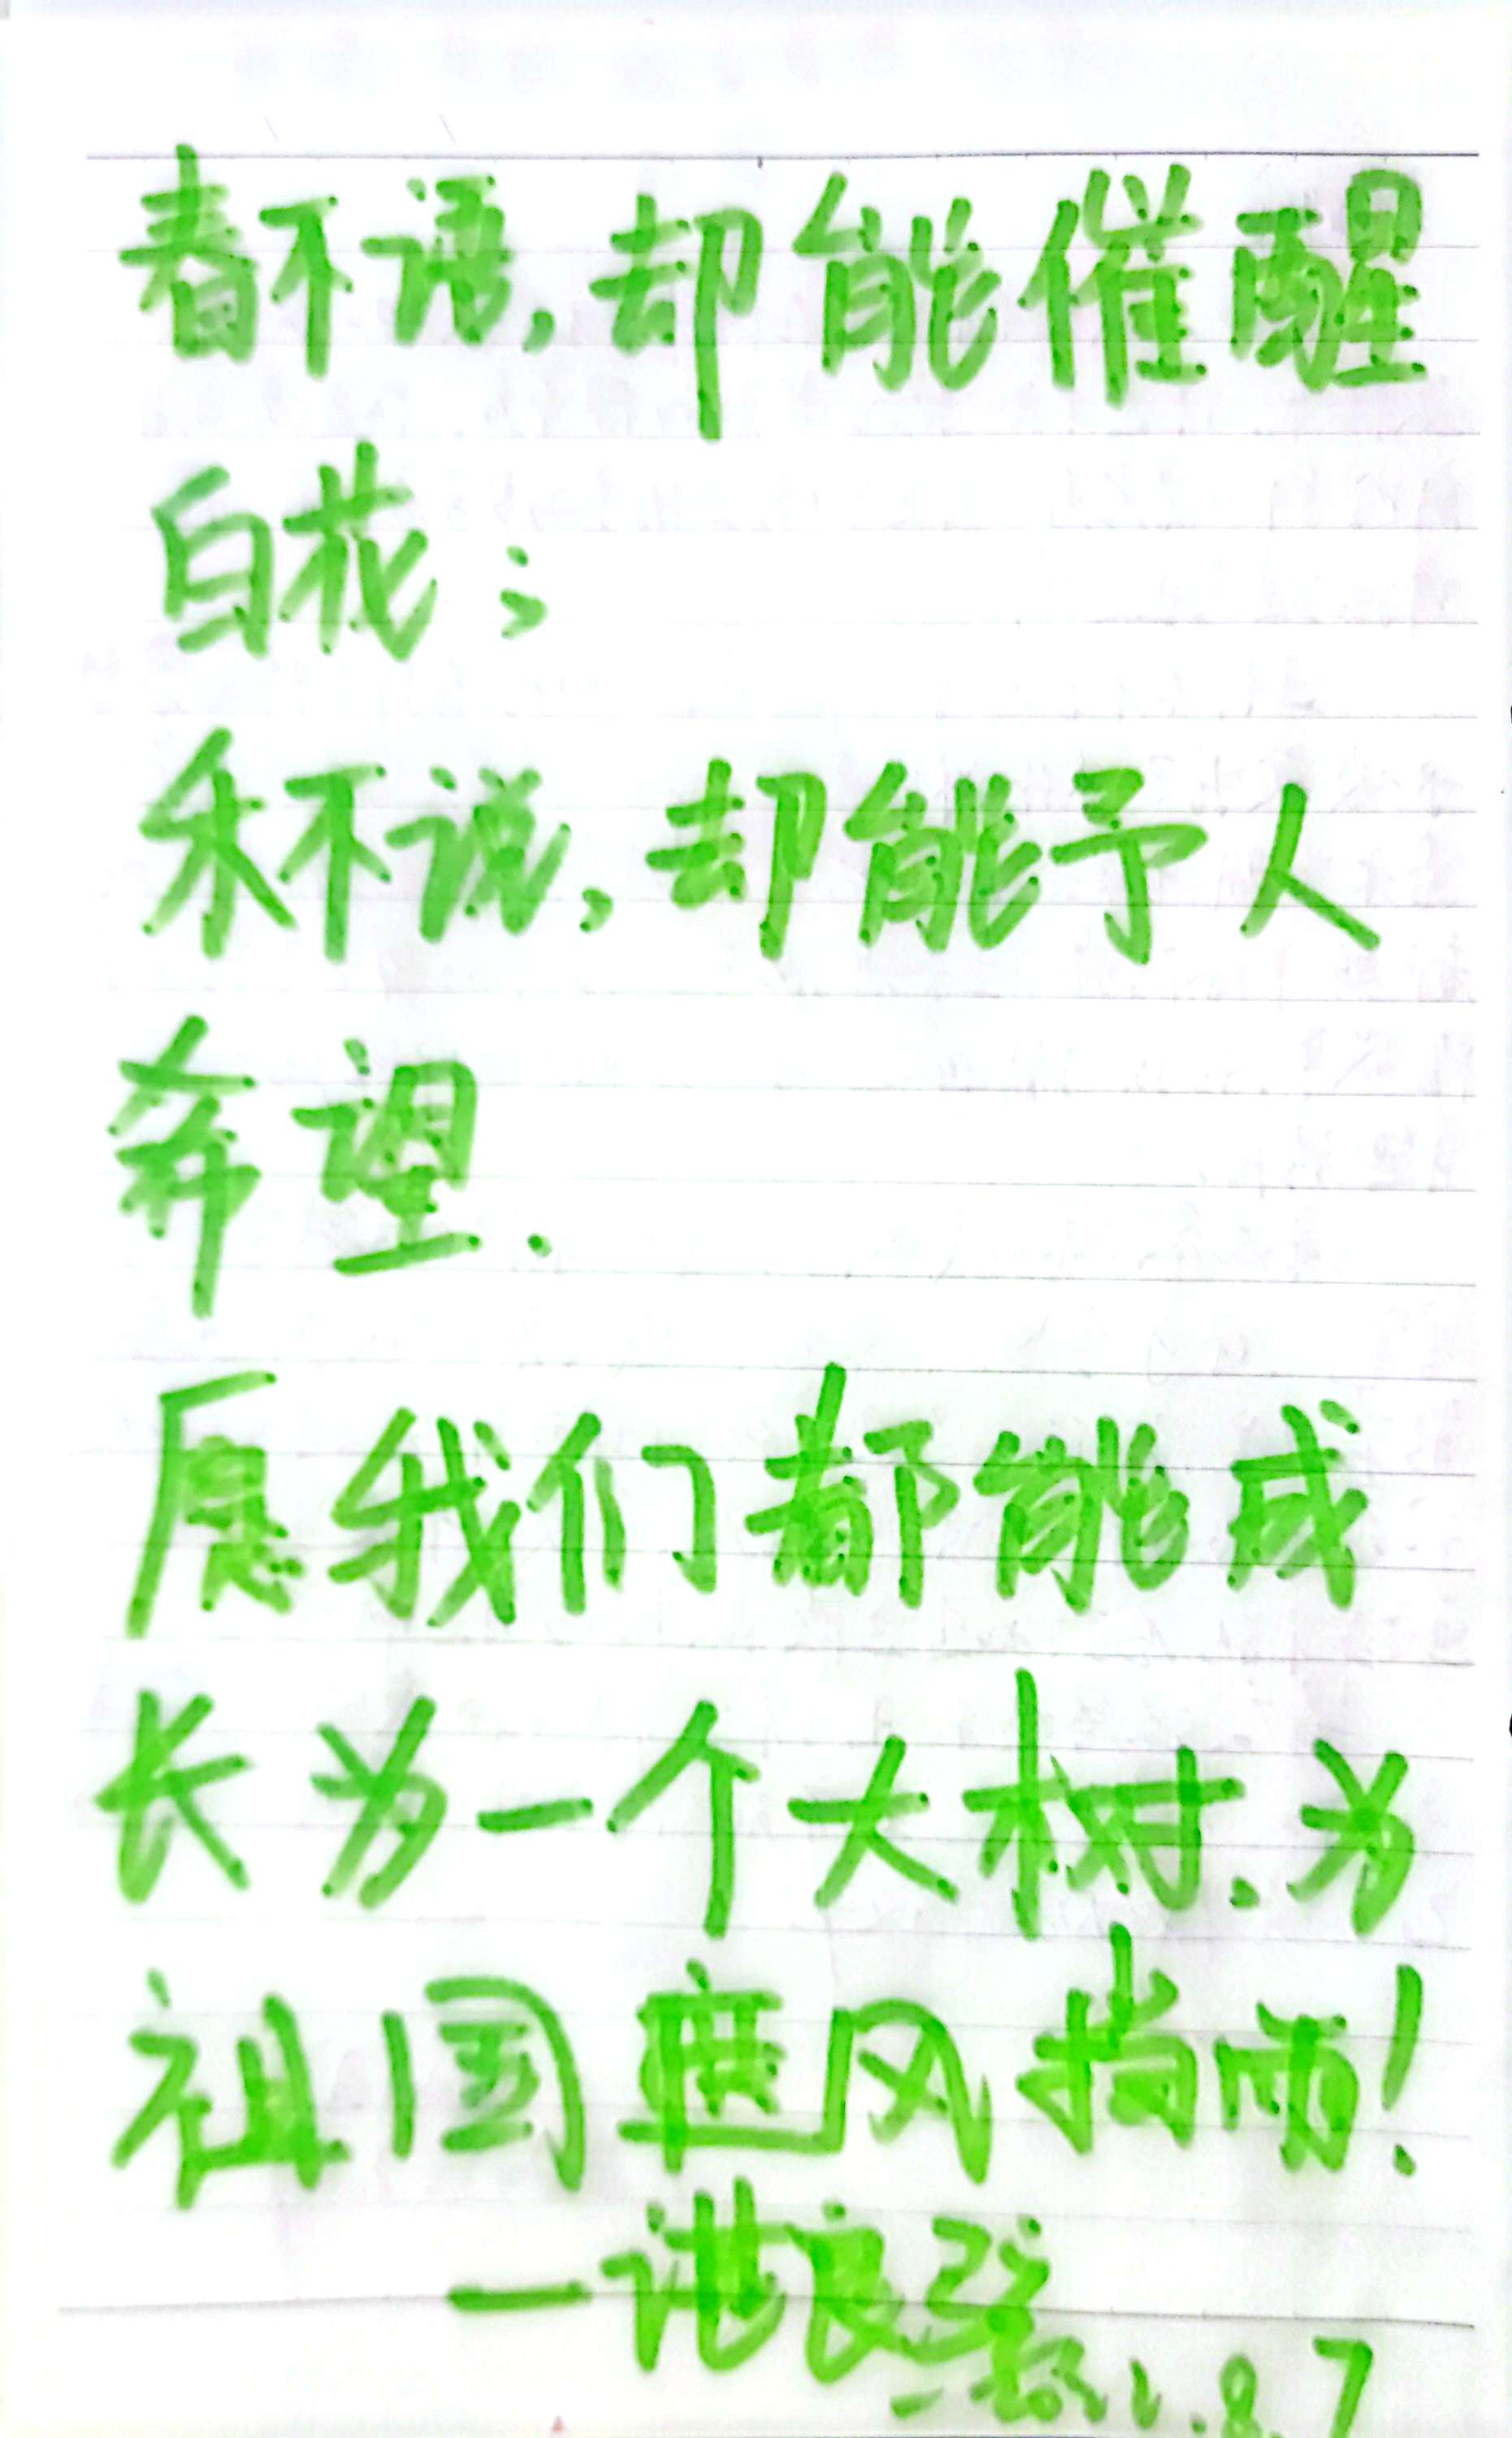 春不语,却能催醒
白花;
禾不说,却能予人
希望.
愿我们都能成
长为一个大树.为
祖国遮风挡雨!
8.7